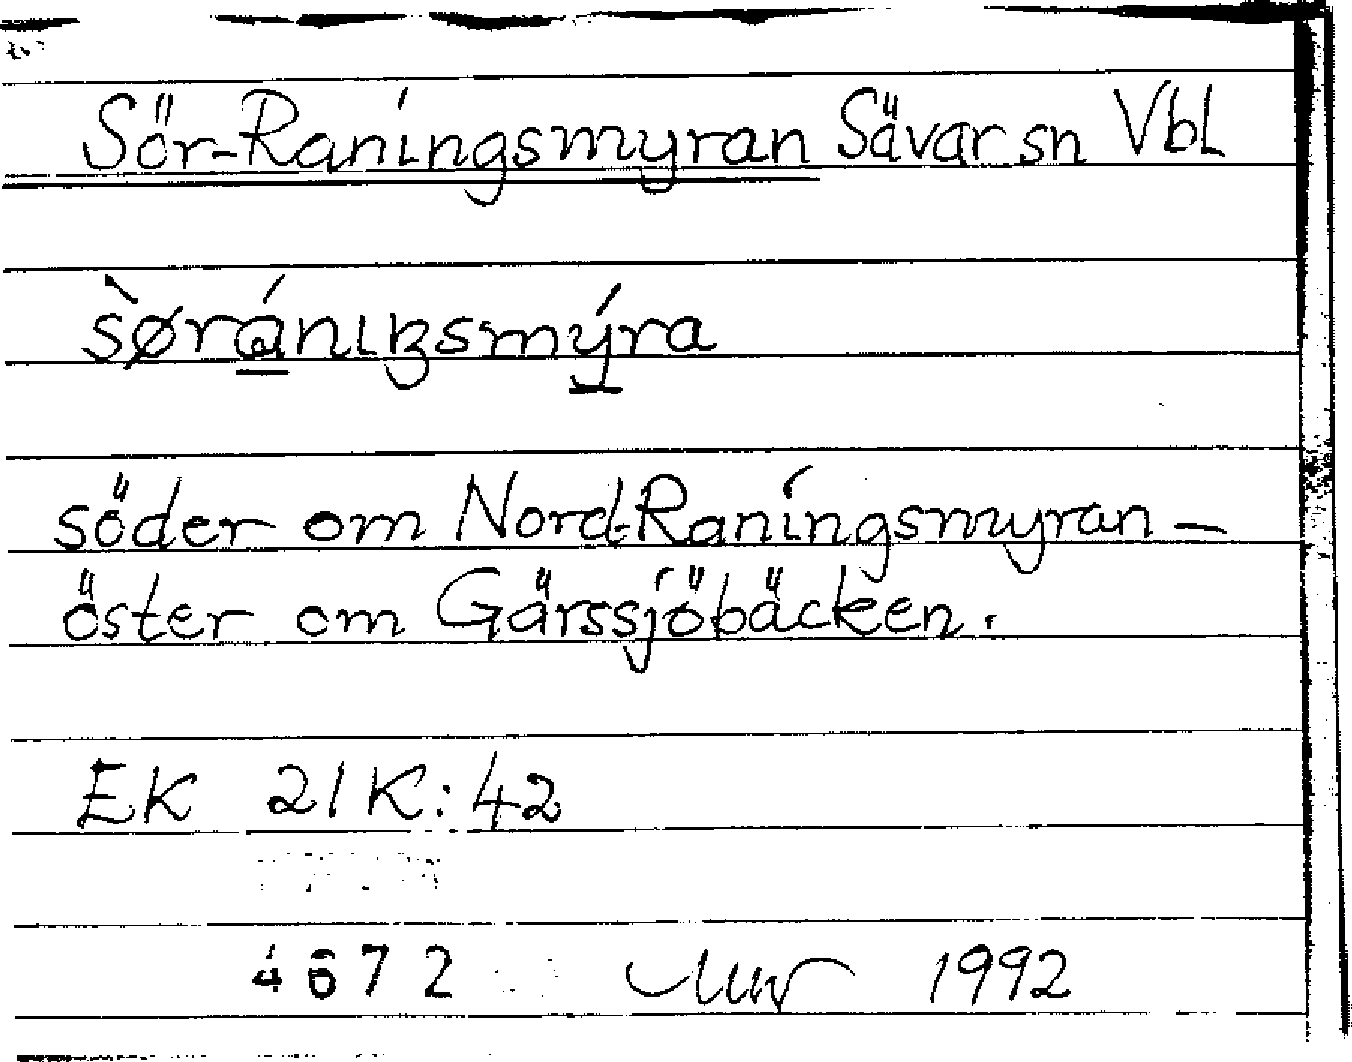 Sör-Raningsmyran Sävar sn Vbl
sø̀ránıŋsmýra
söder om Nord-Raningsmyran –
öster om Gärssjöbäcken.
EK 21K:42
4672 1992